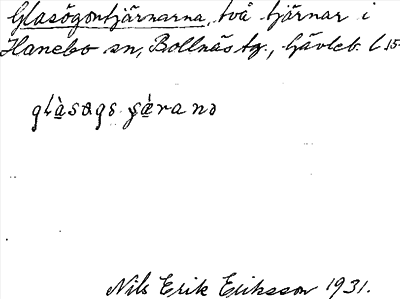 Glasögontjärnarna, två tjärnar i
Hanebo sn, Bollnäs tg., Gävleb. l.
Nils Erik Eriksson 1931.